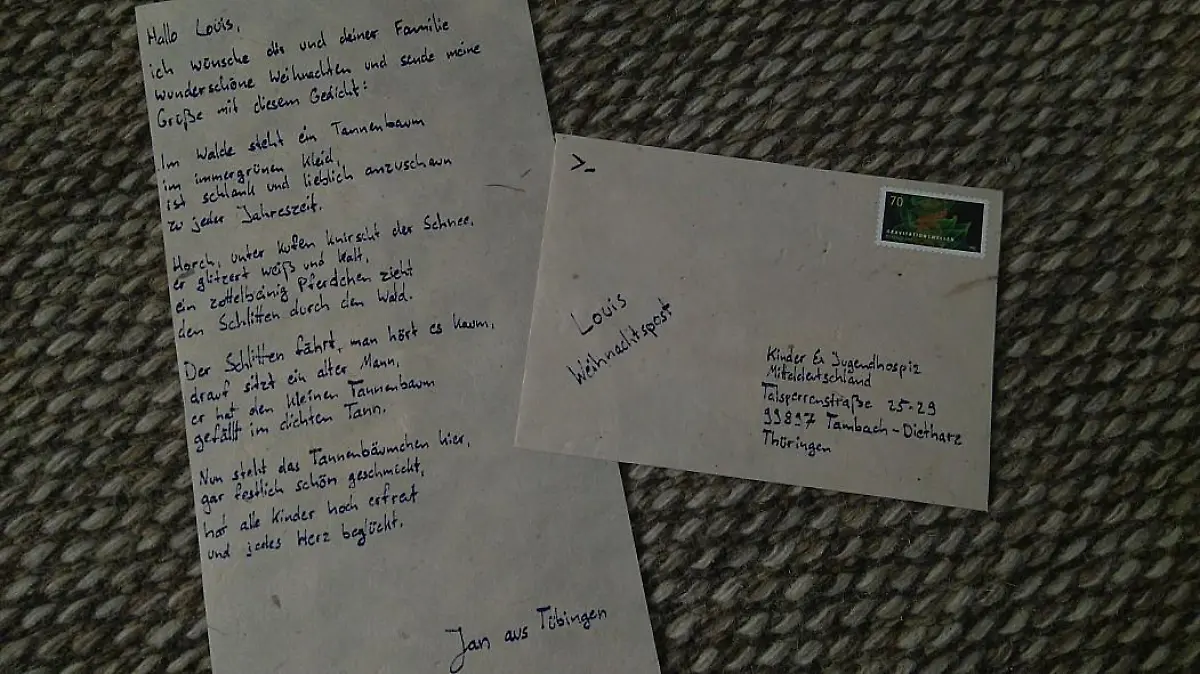 Hallo Louis,
ich wünsche dir und deiner Familie
wunderschöne Weihnachten und sende meine
Grüße mit diesem Gedicht:
Im Walde steht ein Tannenbaum
im immergrünen Kleid,
ist schlank und lieblich anzuschaun
zu jeder Jahreszeit.
Horch, unter Kufen knirscht der Schnee,
er glitzert weiß und kalt,
ein zottelbeinig Pferdchen zieht
den Schlitten durch den Wald.
Der Schlitten fährt, man hört es kaum,
drauf sitzt ein alter Mann,
er hat den kleinen Tannenbaum
gefällt im dichten Tann.
Nun steht das Tannenbäumchen hier,
gar festlich schön geschmückt,
hat alle Kinder hoch erfreut
und jedes Herz beglückt.
Jan aus Tübingen
>_
70
GRAVITATIONSWELLEN
Louis
Weihnachtspost
Kinder & Jugendhospiz
Mitteldeutschland
Talsperrenstraße 25-29
99897 Tambach-Dietharz
Thüringen